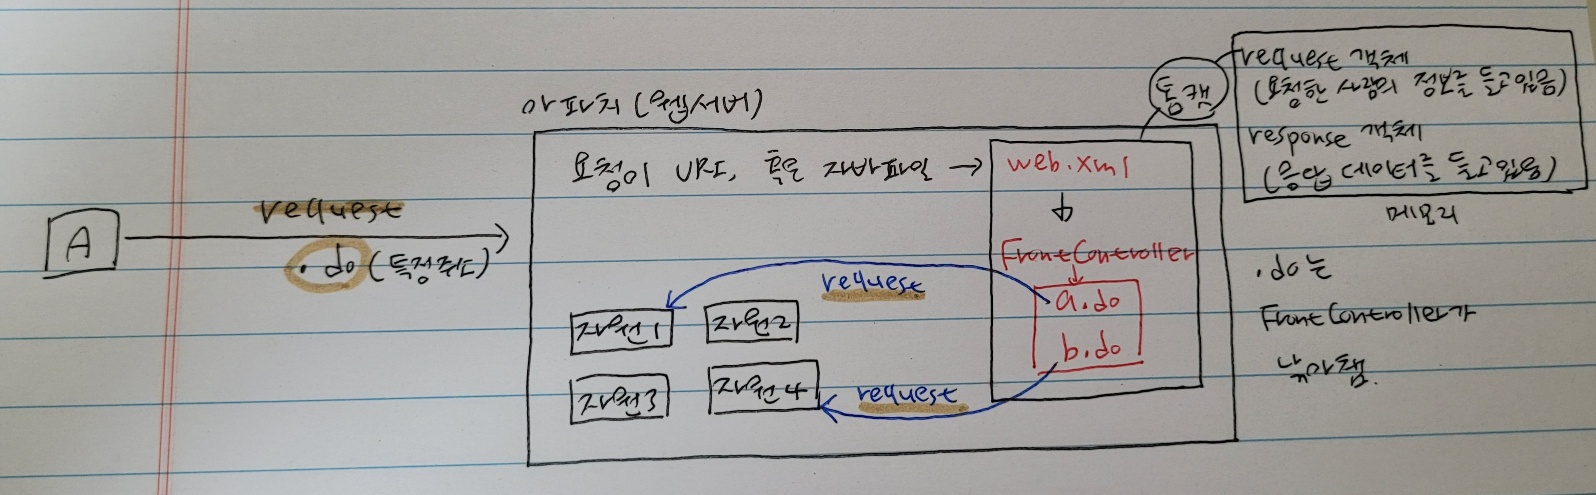 A
request
.do (특정주소)
아파치 (웹서버)
요청이 URI, 혹은 자바파일 →
web.xml
FrontController
a.do
b.do
request
request
자원1
자원2
자원3
자원4
톰캣
request 객체
(요청한 사람의 정보를 들고있음)
response 객체
(응답 데이터를 들고있음)
메모리
.do는
FrontController가
낚아챔.